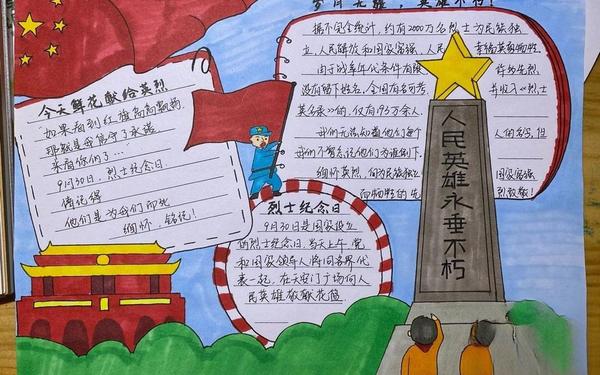 岁月无恙，英雄不朽！
据不完全统计，约有2000万名烈士为民族独
立、人民解放和国家富强、人民幸福英勇牺牲。
由于战争年代条件有限 许多先烈
没有留下姓名，全国有名可考 并收入《烈士
英名录》的，仅有193万余人。
人的名号，但
缅怀英烈，向为民族独立 国家富强
而牺牲的先烈致敬！
今天鲜花献给英烈
“如果看到红旗高高飘扬，
那就是我
来看你们了…”
9月30日，烈士纪念日
请记得
他们是为我们而死
缅怀，铭记！
烈士纪念日
9月30日是国家设立
的烈士纪念日，当天上午，党
和国家领导人将同各界代
表一起，在天安门广场向人
民英雄敬献花篮
人民英雄永垂不朽